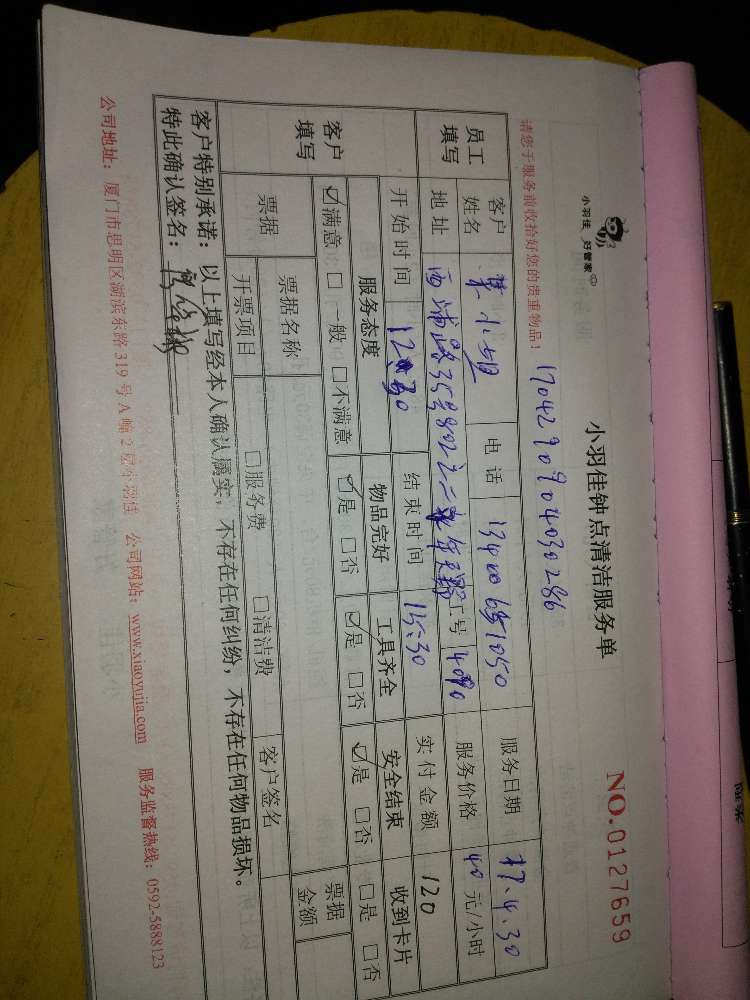 小羽佳 好管家
小羽佳钟点清洁服务单
NO.0127659
请您于服务前收拾好您的贵重物品!
1704290904030286
员工填写
客户姓名 小姐 电话 服务日期 17.4.30
地址 西浦路35号802之二 工号 4090 服务价格 40 元/小时
开始时间 12:30 结束时间 15:30 实付金额 120
客户填写
服务态度 物品完好 工具齐全 安全结束 收到卡片
☑满意 □一般 □不满意 ☑是 □否 ☑是 □否 ☑是 □否 □是 □否
票据 票据名称 □服务费 □清洁费 客户签名 票据金额
开票项目
客户特别承诺：以上填写经本人确认属实，不存在任何纠纷，不存在任何物品损坏。
特此确认签名：
公司地址：厦门市思明区湖滨东路319号A幢2层小羽佳 公司网站：www.xiaoyujia.com 服务监督热线：0592-5888123